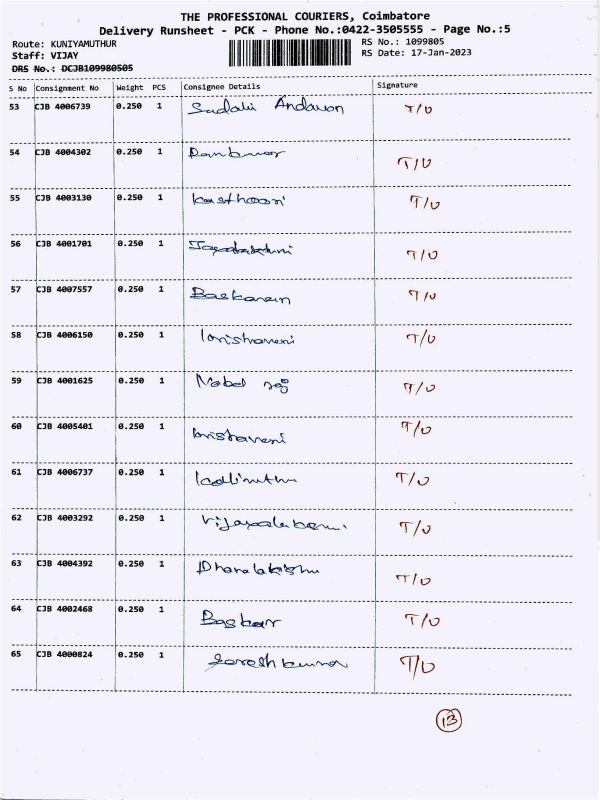 THE PROFESSIONAL COURIERS, Coimbatore
Delivery Runsheet - PCK - Phone No.:0422-3505555 - Page No.:5
Route: KUNIYAMUTHUR RS No.: 1099805
Staff: VIJAY RS Date: 17-Jan-2023
DRS No.: DCJB109980505
S No Consignment No Weight PCS Consignee Details Signature
53 CJB 4006739 0.250 1 Andavan T/U
54 CJB 4004302 0.250 1 T/U
55 CJB 4003130 0.250 1 Kasthoori T/U
56 CJB 4001701 0.250 1 T/U
57 CJB 4007557 0.250 1 Baskaran T/U
58 CJB 4006150 0.250 1 T/U
59 CJB 4001625 0.250 1 T/U
60 CJB 4005401 0.250 1 T/U
61 CJB 4006737 0.250 1 T/U
62 CJB 4003292 0.250 1 T/U
63 CJB 4004392 0.250 1 T/U
64 CJB 4002468 0.250 1 Baskar T/U
65 CJB 4000824 0.250 1 T/U
13